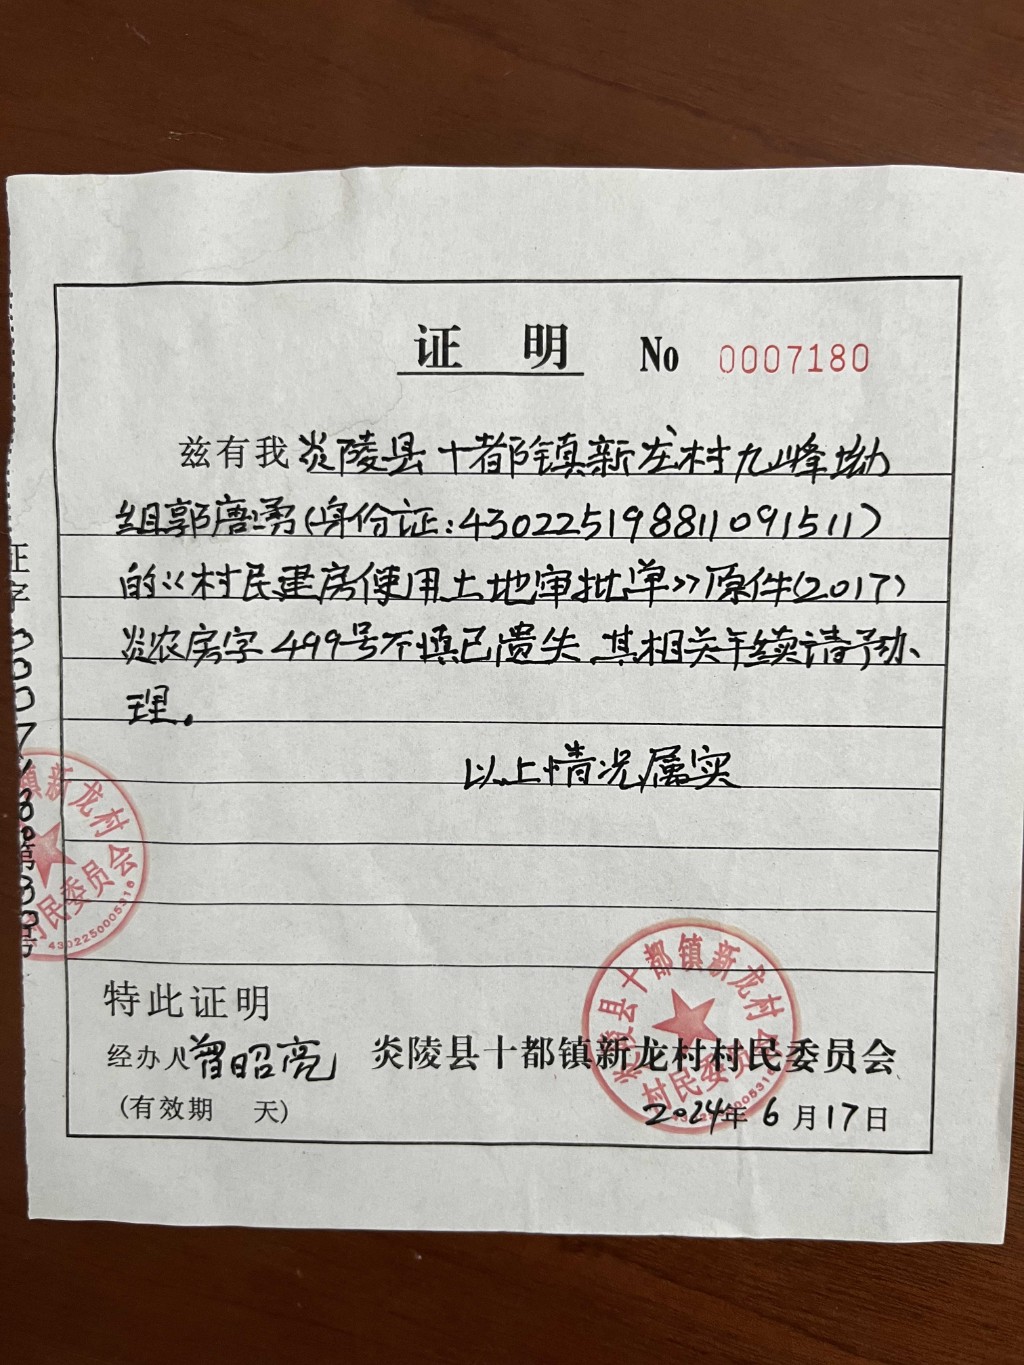 证 明 No 0007180
兹有我炎陵县十都镇新龙村九峰坳
组郭唐勇(身份证:430225198811091511)
的《村民建房使用土地审批单》原件(2017)
炎农房字499号不慎已遗失,其相关手续请予办
理。
以上情况属实
特此证明
经办人曾昭亮 炎陵县十都镇新龙村村民委员会
(有效期 天)
2024年6月17日
镇新龙村
村民委员会
4302250005318
炎陵县十都镇新龙村
村民委员会